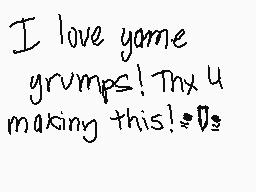 I love game
grumps! Thx u
making this!